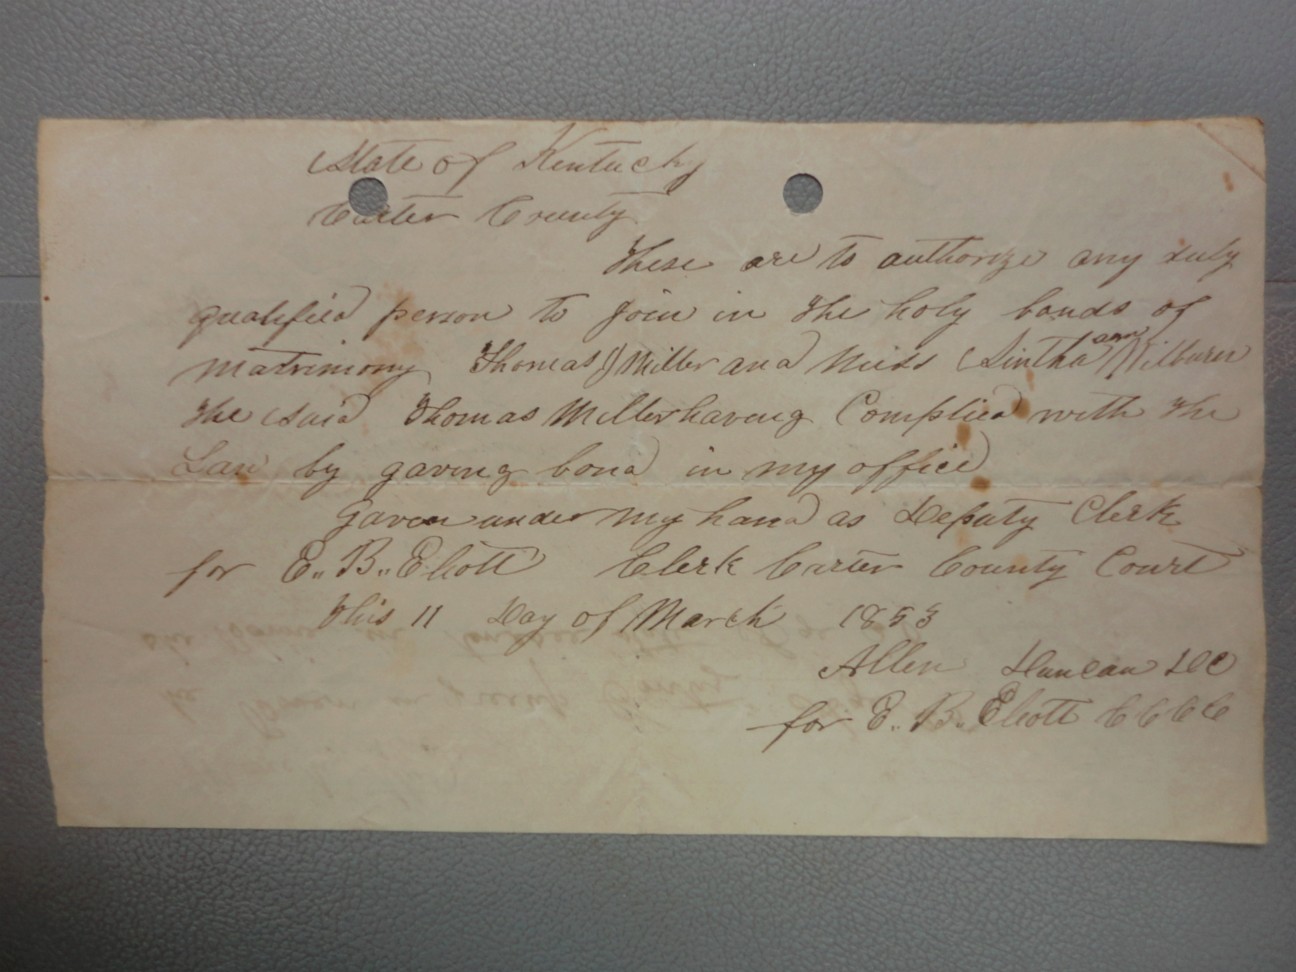 State of Kentucky
Carter County
These are to authorize any duly
qualified person to join in the holy bonds of
matrimony Thomas J Miller and Miss Sintha ann Wilburn
the said Thomas Miller having Complied with the
Law by gaving bond in my office
Gaven under my hand as Deputy Clerk
for E.. B.. Eliott Clerk Carter County Court
This 11 Day of March 1853
Allen Duncan DC
for E.. B.. Eliott CCCC